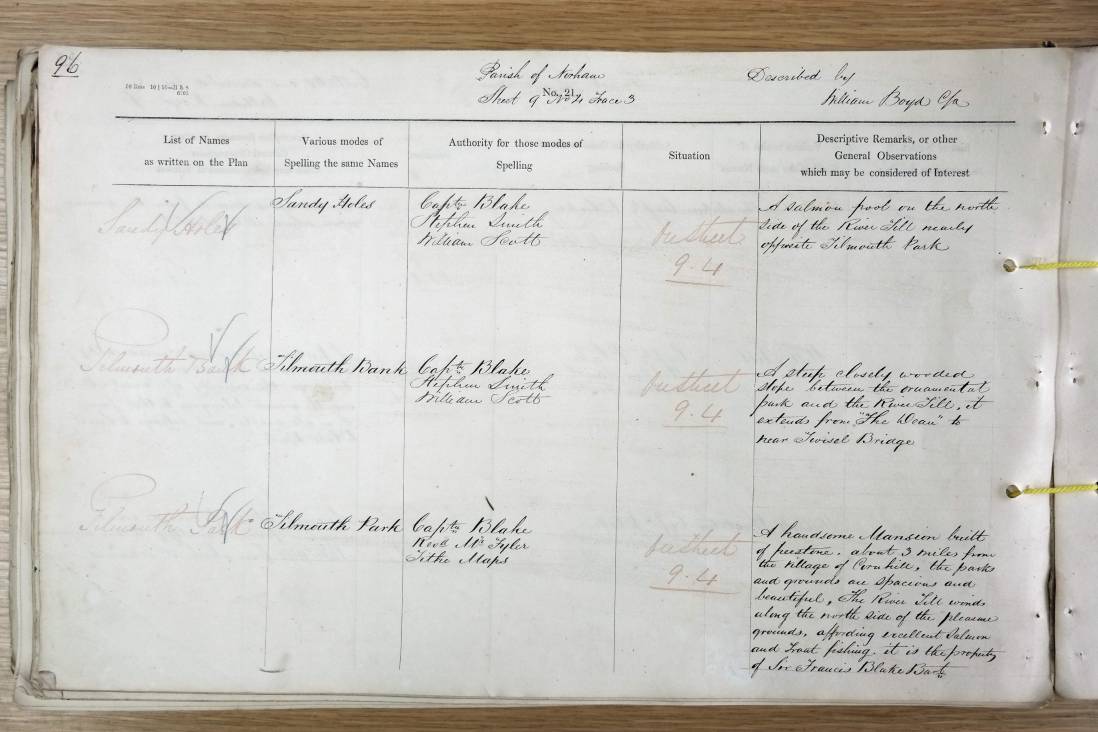 96
Parish of Norham
Sheet 9 No. 4 Trace 3
No. 21
Described by
William Boyd C/a
List of Names
as written on the Plan
Various modes of
Spelling the same Names
Authority for those modes of
Spelling
Situation
Descriptive Remarks, or other
General Observations
which may be considered of Interest
Sandy Holes
Sandy Holes
Captn Blake
Stephen Smith
William Scott
On Sheet
9.4
A salmon pool on the north
side of the River Till nearly
opposite Tilmouth Park
Tilmouth Bank
Tilmouth Bank
Captn Blake
Stephen Smith
William Scott
On Sheet
9.4
A steep closely wooded
slope between the ornamental
park and the River Till, it
extends from "The Dean" to
near Twisel Bridge
Tilmouth Park
Tilmouth Park
Captn Blake
Revd Mr Tyler
Tithe Maps
On Sheet
9.4
A handsome Mansion built
of freestone. about 3 miles from
the village of Cornhill, the parks
and grounds are spacious and
beautiful, The River Till winds
along the north side of the pleasure
grounds, affording excellent Salmon
and Trout fishing. it is the property
of Sir Francis Blake Bart